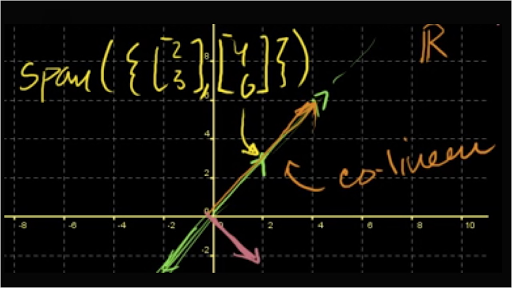 span({[2 3],[4 6]})
ℝ
co-linear
8
6
4
2
0
-2
-8 -6 -4 -2 2 4 6 8 10